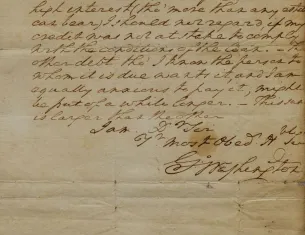 high interest (tho' more than any other
can bear) I should not regard, if my
credit was not at stake to comply
with the conditions of the loan. — The
other debt tho' I know the person to
whom it is due wants it, and I am
equally anxious to pay it, might
be put of a while longer. — This sum
is larger than the other
I am. Dr Sir
Yr most Obedt Hble Ser
Go: Washington